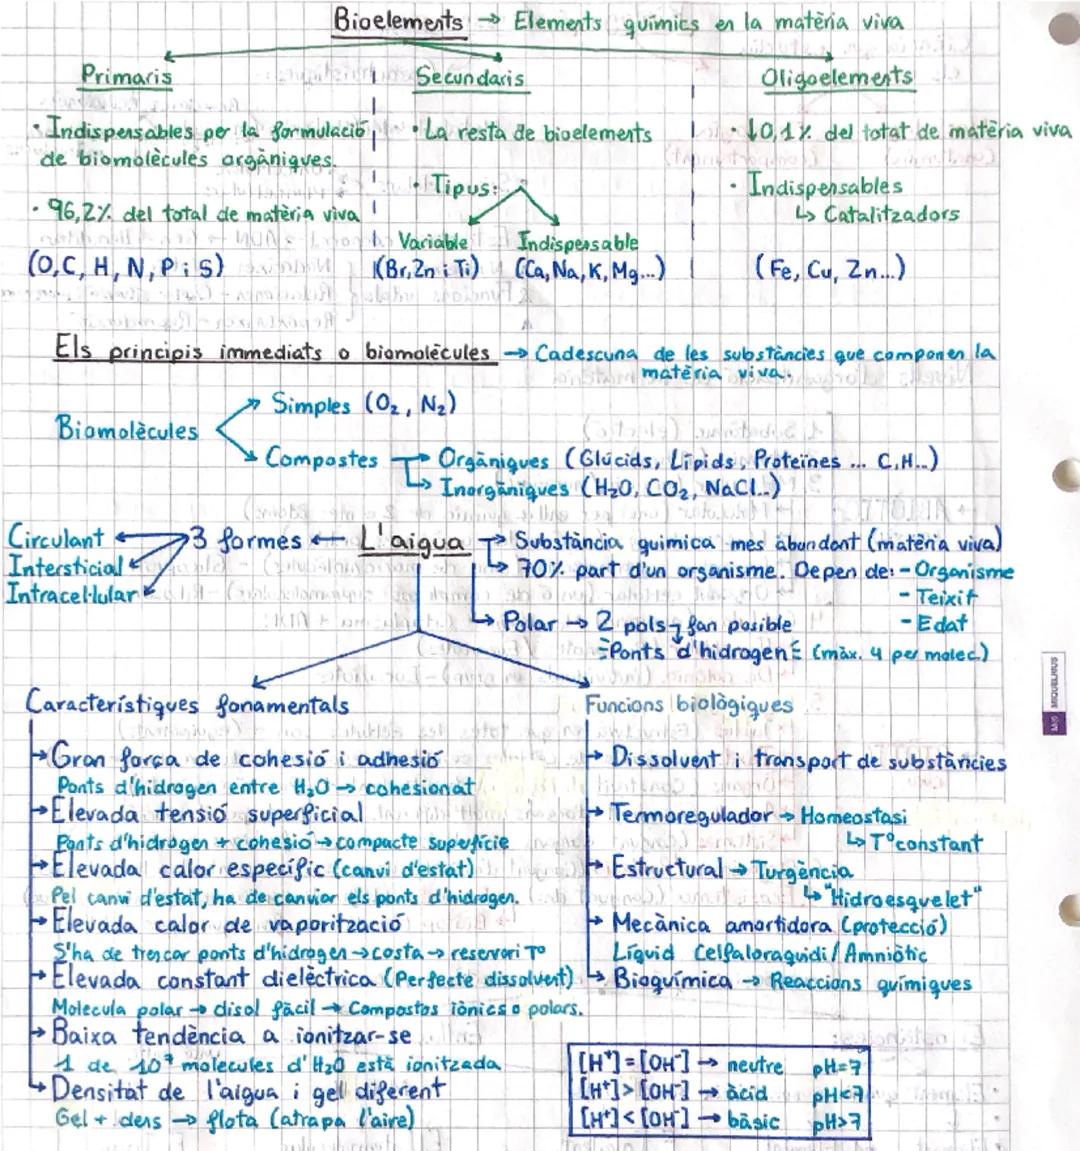 Bioelements → Elements químics en la matèria viva
Primaris
· Indispensables per la formulació
de biomolècules orgàniques.
· 96,2% del total de matèria viva
(O, C, H, N, P i S)
Secundaris
· La resta de bioelements
· Tipus:
Variable
(Br, Zn i Ti)
Indispensable
(Ca, Na, K, Mg...)
Oligoelements
· ↓0,1% del totat de matèria viva
· Indispensables
↳ Catalitzadors
(Fe, Cu, Zn...)
Els principis immediats o biomolècules → Cadescuna de les substàncies que componen la
matèria viva.
Biomolècules
Simples (O₂, N₂)
Compostes
→ Orgàniques (Glúcids, Lípids, Proteïnes ... C,H..)
↳ Inorgàniques (H₂O, CO₂, NaCl..)
Circulant
Intersticial
Intracel·lular
3 formes ← L'aigua
→ Substància quimica mes abundant (matèria viva)
↳ 70% part d'un organisme. Depen de: - Organisme
- Teixit
- Edat
↳ Polar → 2 pols fan posible
Ponts d'hidrogen (màx. 4 per molec.)
Característiques fonamentals
→ Gran força de cohesió i adhesió
Ponts d'hidrogen entre H₂O → cohesionat
→ Elevada tensió superficial
Ponts d'hidrogen + cohesió → compacte superfície
→ Elevada calor específic (canvi d'estat)
Pel canvi d'estat, ha de canviar els ponts d'hidrogen.
→ Elevada calor de vaporització
S'ha de trencar ponts d'hidrogen → costa → reservori Tº
→ Elevada constant dielèctrica (Perfecte dissolvent)
Molecula polar → disol fàcil → Compostos iònics o polars.
→ Baixa tendència a ionitzar-se
1 de 10⁷ molecules d'H₂O està ionitzada
↳ Densitat de l'aigua i gel diferent
Gel + dens → flota (atrapa l'aire)
Funcions biològiques
→ Dissolvent i transport de substàncies
→ Termoregulador → Homeostasi
↳ Tº constant
→ Estructural → Turgència
↳ "Hidroesquelet"
→ Mecànica amortidora (protecció)
Líquid Celfaloraquidi / Amniòtic
↳ Bioquímica → Reaccions químiques
[H⁺] = [OH⁻] → neutre pH=7
[H⁺] > [OH⁻] → àcid pH<7
[H⁺] < [OH⁻] → bàsic pH>7
MIQUELRIUS